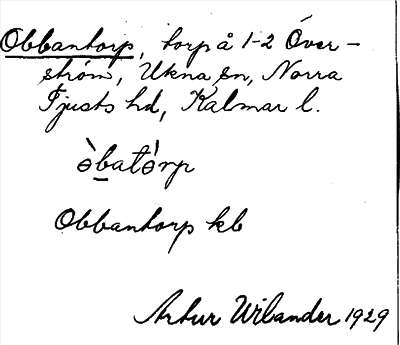 Obbantorp, torp å 1-2 Över-
ström, Ukna sn, Norra
Tjusts hd, Kalmar l.
òbatórp
Obbantorp kb
Artur Wilander 1929